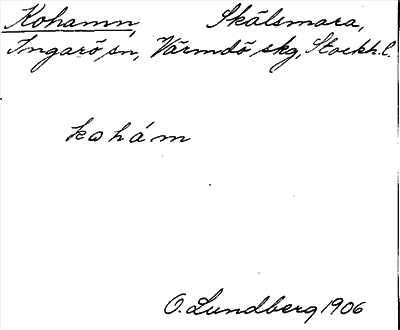 Kohamn, Skälsmara,
Ingarö sn, Värmdö skg, Stockh.l.
kohám
O. Lundberg 1906